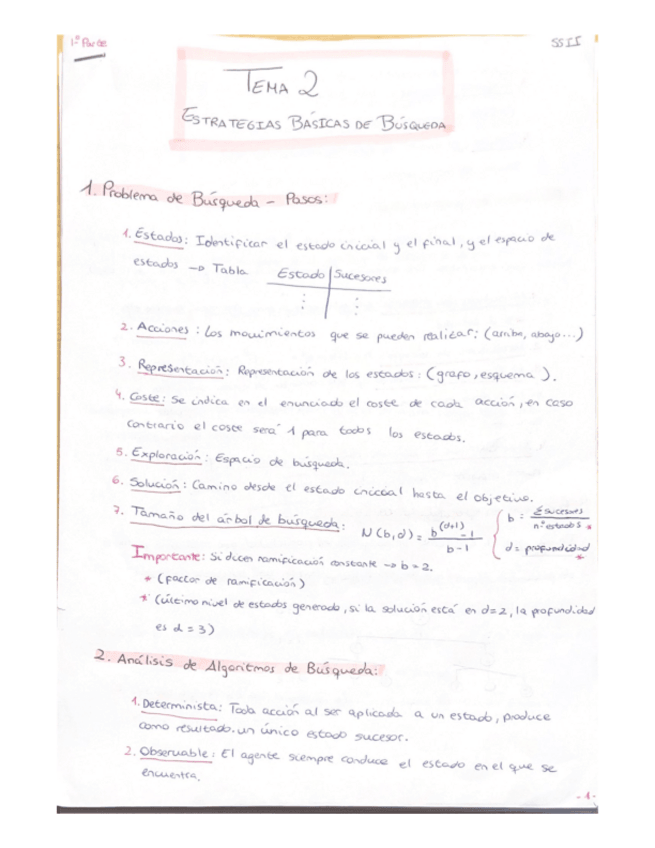 1º Parcial
SSII
TEMA 2
ESTRATEGIAS BÁSICAS DE BÚSQUEDA
1. Problema de Búsqueda - Pasos:
1. Estados: Identificar el estado inicial y el final, y el espacio de
estados → Tabla Estado | Sucesores
⋮ ⋮
2. Acciones: Los movimientos que se pueden realizar: (arriba, abajo...)
3. Representación: Representación de los estados: (grafo, esquema).
4. Coste: Se indica en el enunciado el coste de cada acción, en caso
contrario el coste será 1 para todos los estados.
5. Exploración: Espacio de búsqueda.
6. Solución: Camino desde el estado inicial hasta el objetivo.
7. Tamaño del árbol de búsqueda: N(b,d) = (b^(d+1) - 1) / (b-1) { b = Σ sucesores / nº estados *
d = profundidad *
Importante: Si dicen ramificación constante → b = 2.
* (factor de ramificación)
* (último nivel de estados generado, si la solución está en d=2, la profundidad
es d = 3)
2. Análisis de Algoritmos de Búsqueda:
1. Determinista: Toda acción al ser aplicada a un estado, produce
como resultado un único estado sucesor.
2. Observable: El agente siempre conduce el estado en el que se
encuentra.
-1-